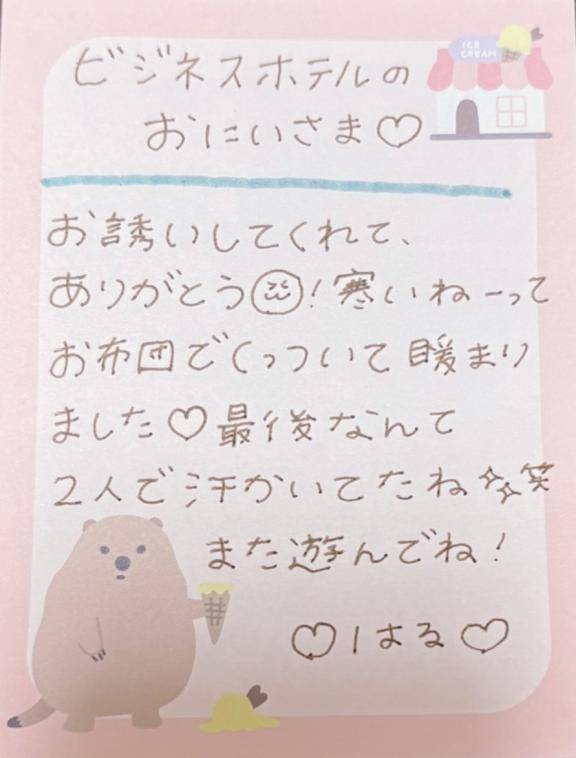 ICE
CREAM
ビジネスホテルの
おにいさま♡
お誘いしてくれて、
ありがとう!寒いねーって
お布団でくっついて暖まり
ました♡最後なんて
2人で汗かいてたね笑
また遊んでね!
♡はる♡